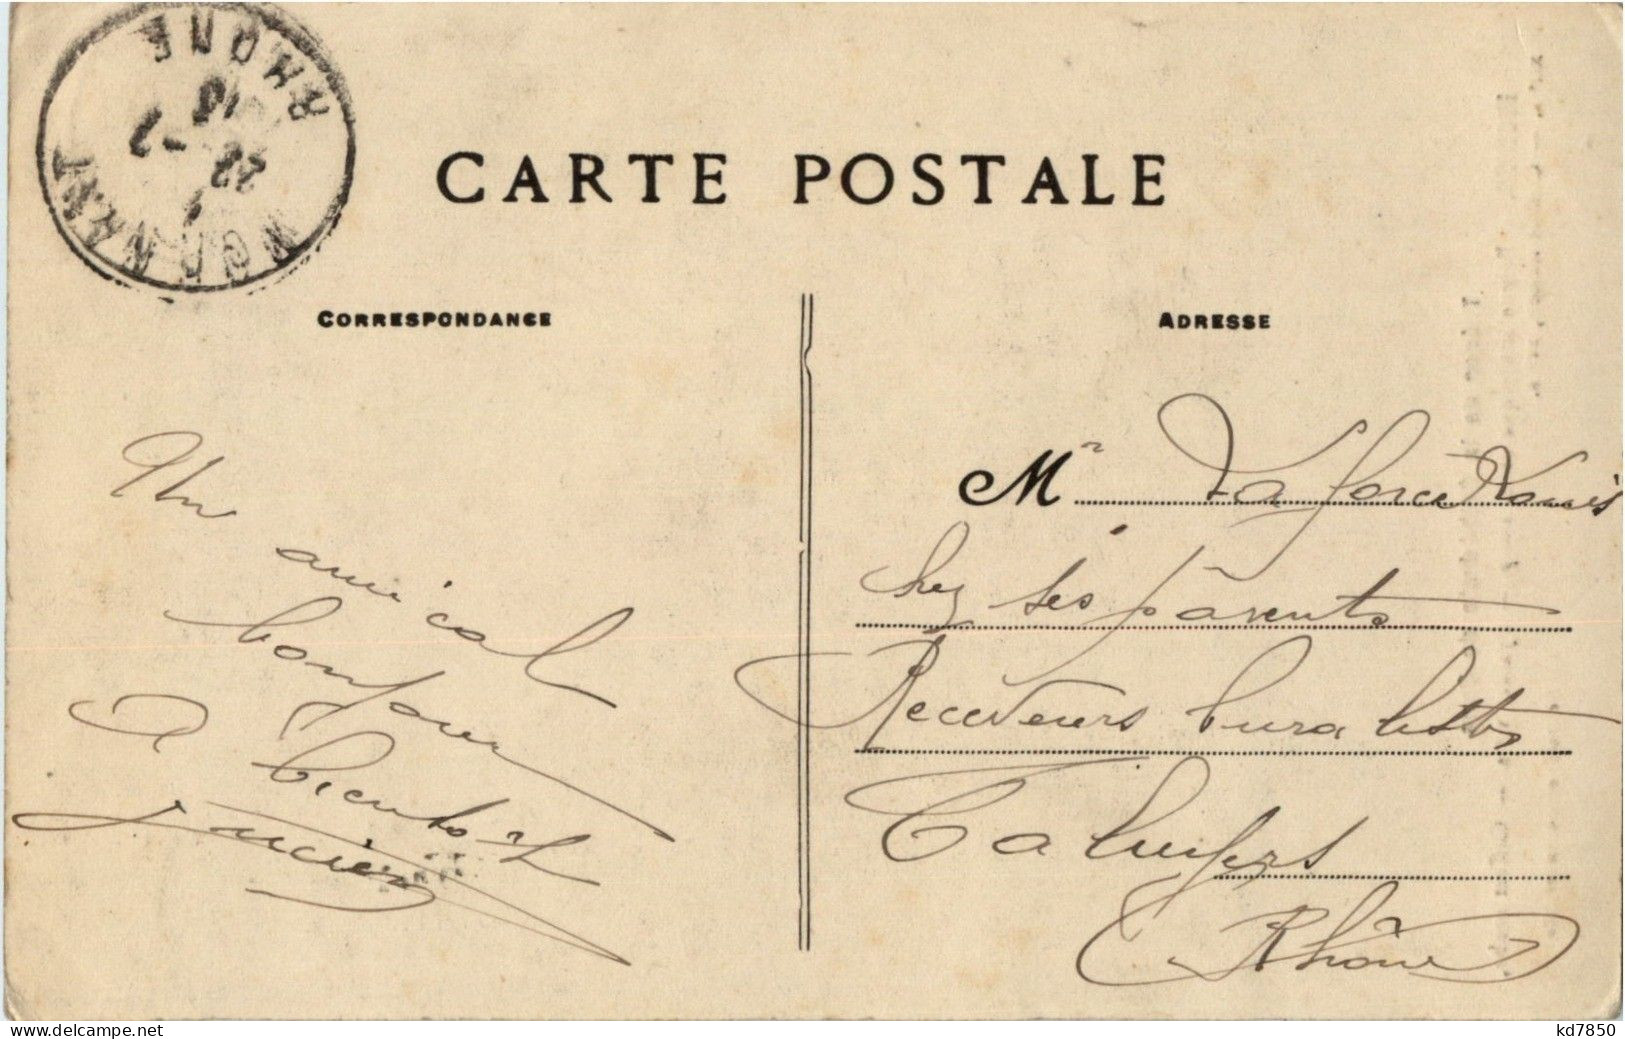 RHONE
22 -2
MORNANT
CARTE POSTALE
CORRESPONDANCE
ADRESSE
Un
amical
bonjour
A bientôt
Lucien
Mr Laforce
chez ses parents
Receveurs buralistes
Taluyers
Rhône
www.delcampe.net
kd7850